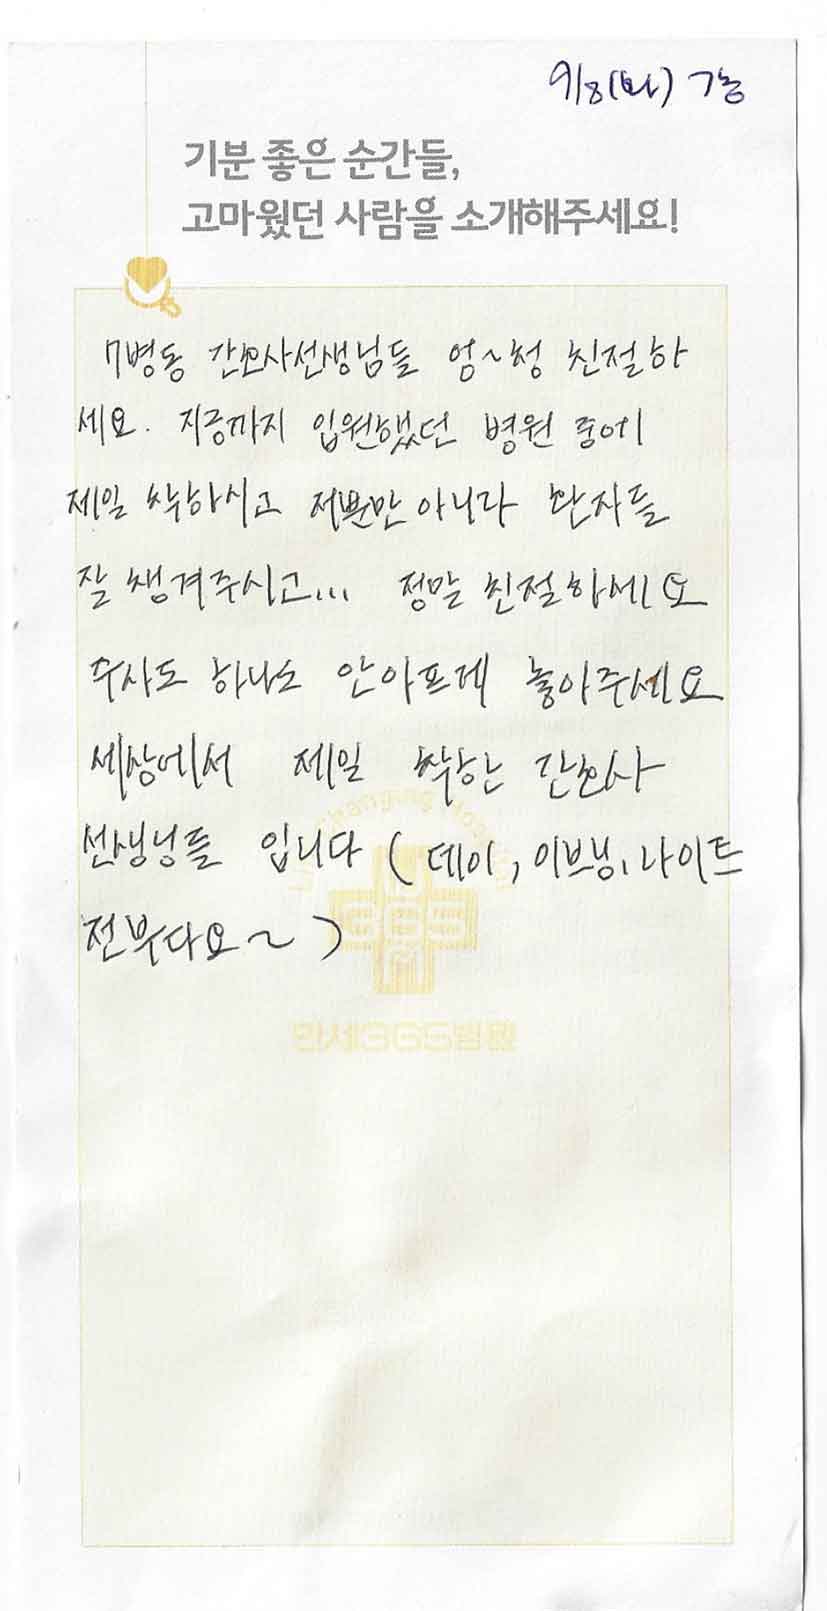 9/8(화) 7층
기분 좋은 순간들,
고마웠던 사람을 소개해주세요!
7병동 간호사선생님들 엄~청 친절하
세요. 지금까지 입원했던 병원 중에
제일 착하시고 저뿐만 아니라 환자들
잘 챙겨주시고... 정말 친절하세요
주사도 하나도 안아프게 놓아주세요
세상에서 제일 착한 간호사
선생님들 입니다 (데이, 이브닝, 나이트
전부다요~)
만세365병원